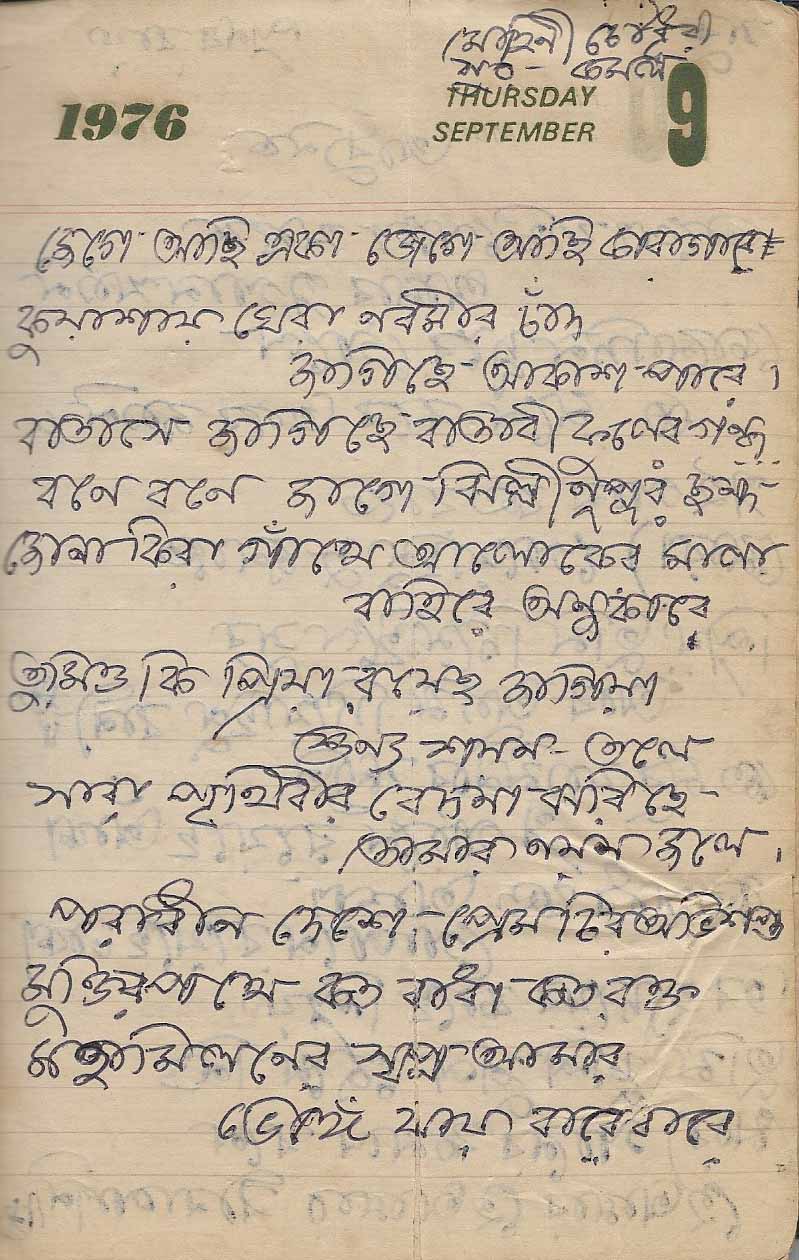 মোহিনী চৌধুরী
সুর - কমল
1976
THURSDAY 9
SEPTEMBER
জেগে আছি একা জেগে আছি কারাগারে
কুয়াশায় ঘেরা নবমীর চাঁদ
জাগিছে আকাশ পারে।
বাতাসে জাগিছে বাতাবী ফুলের গন্ধ
বনে বনে জাগে ঝিল্লী নূপুর ছন্দ
জোনাকিরা গাঁথে আলোকের মালা
বাহিরে অন্ধকারে
তুমিও কি প্রিয়া রয়েছ জাগিয়া
শূন্য শয়ন - তলে
সারা পৃথিবীর বেদনা ঝরিছে
তোমার নয়ন জলে।
পরাধীন দেশে প্রেম চির অভিশপ্ত
মুক্তির পথে কত বাধা কত রক্ত
মিলনের স্বপ্ন আমার
ভেঙ্গে যায় বারে বারে